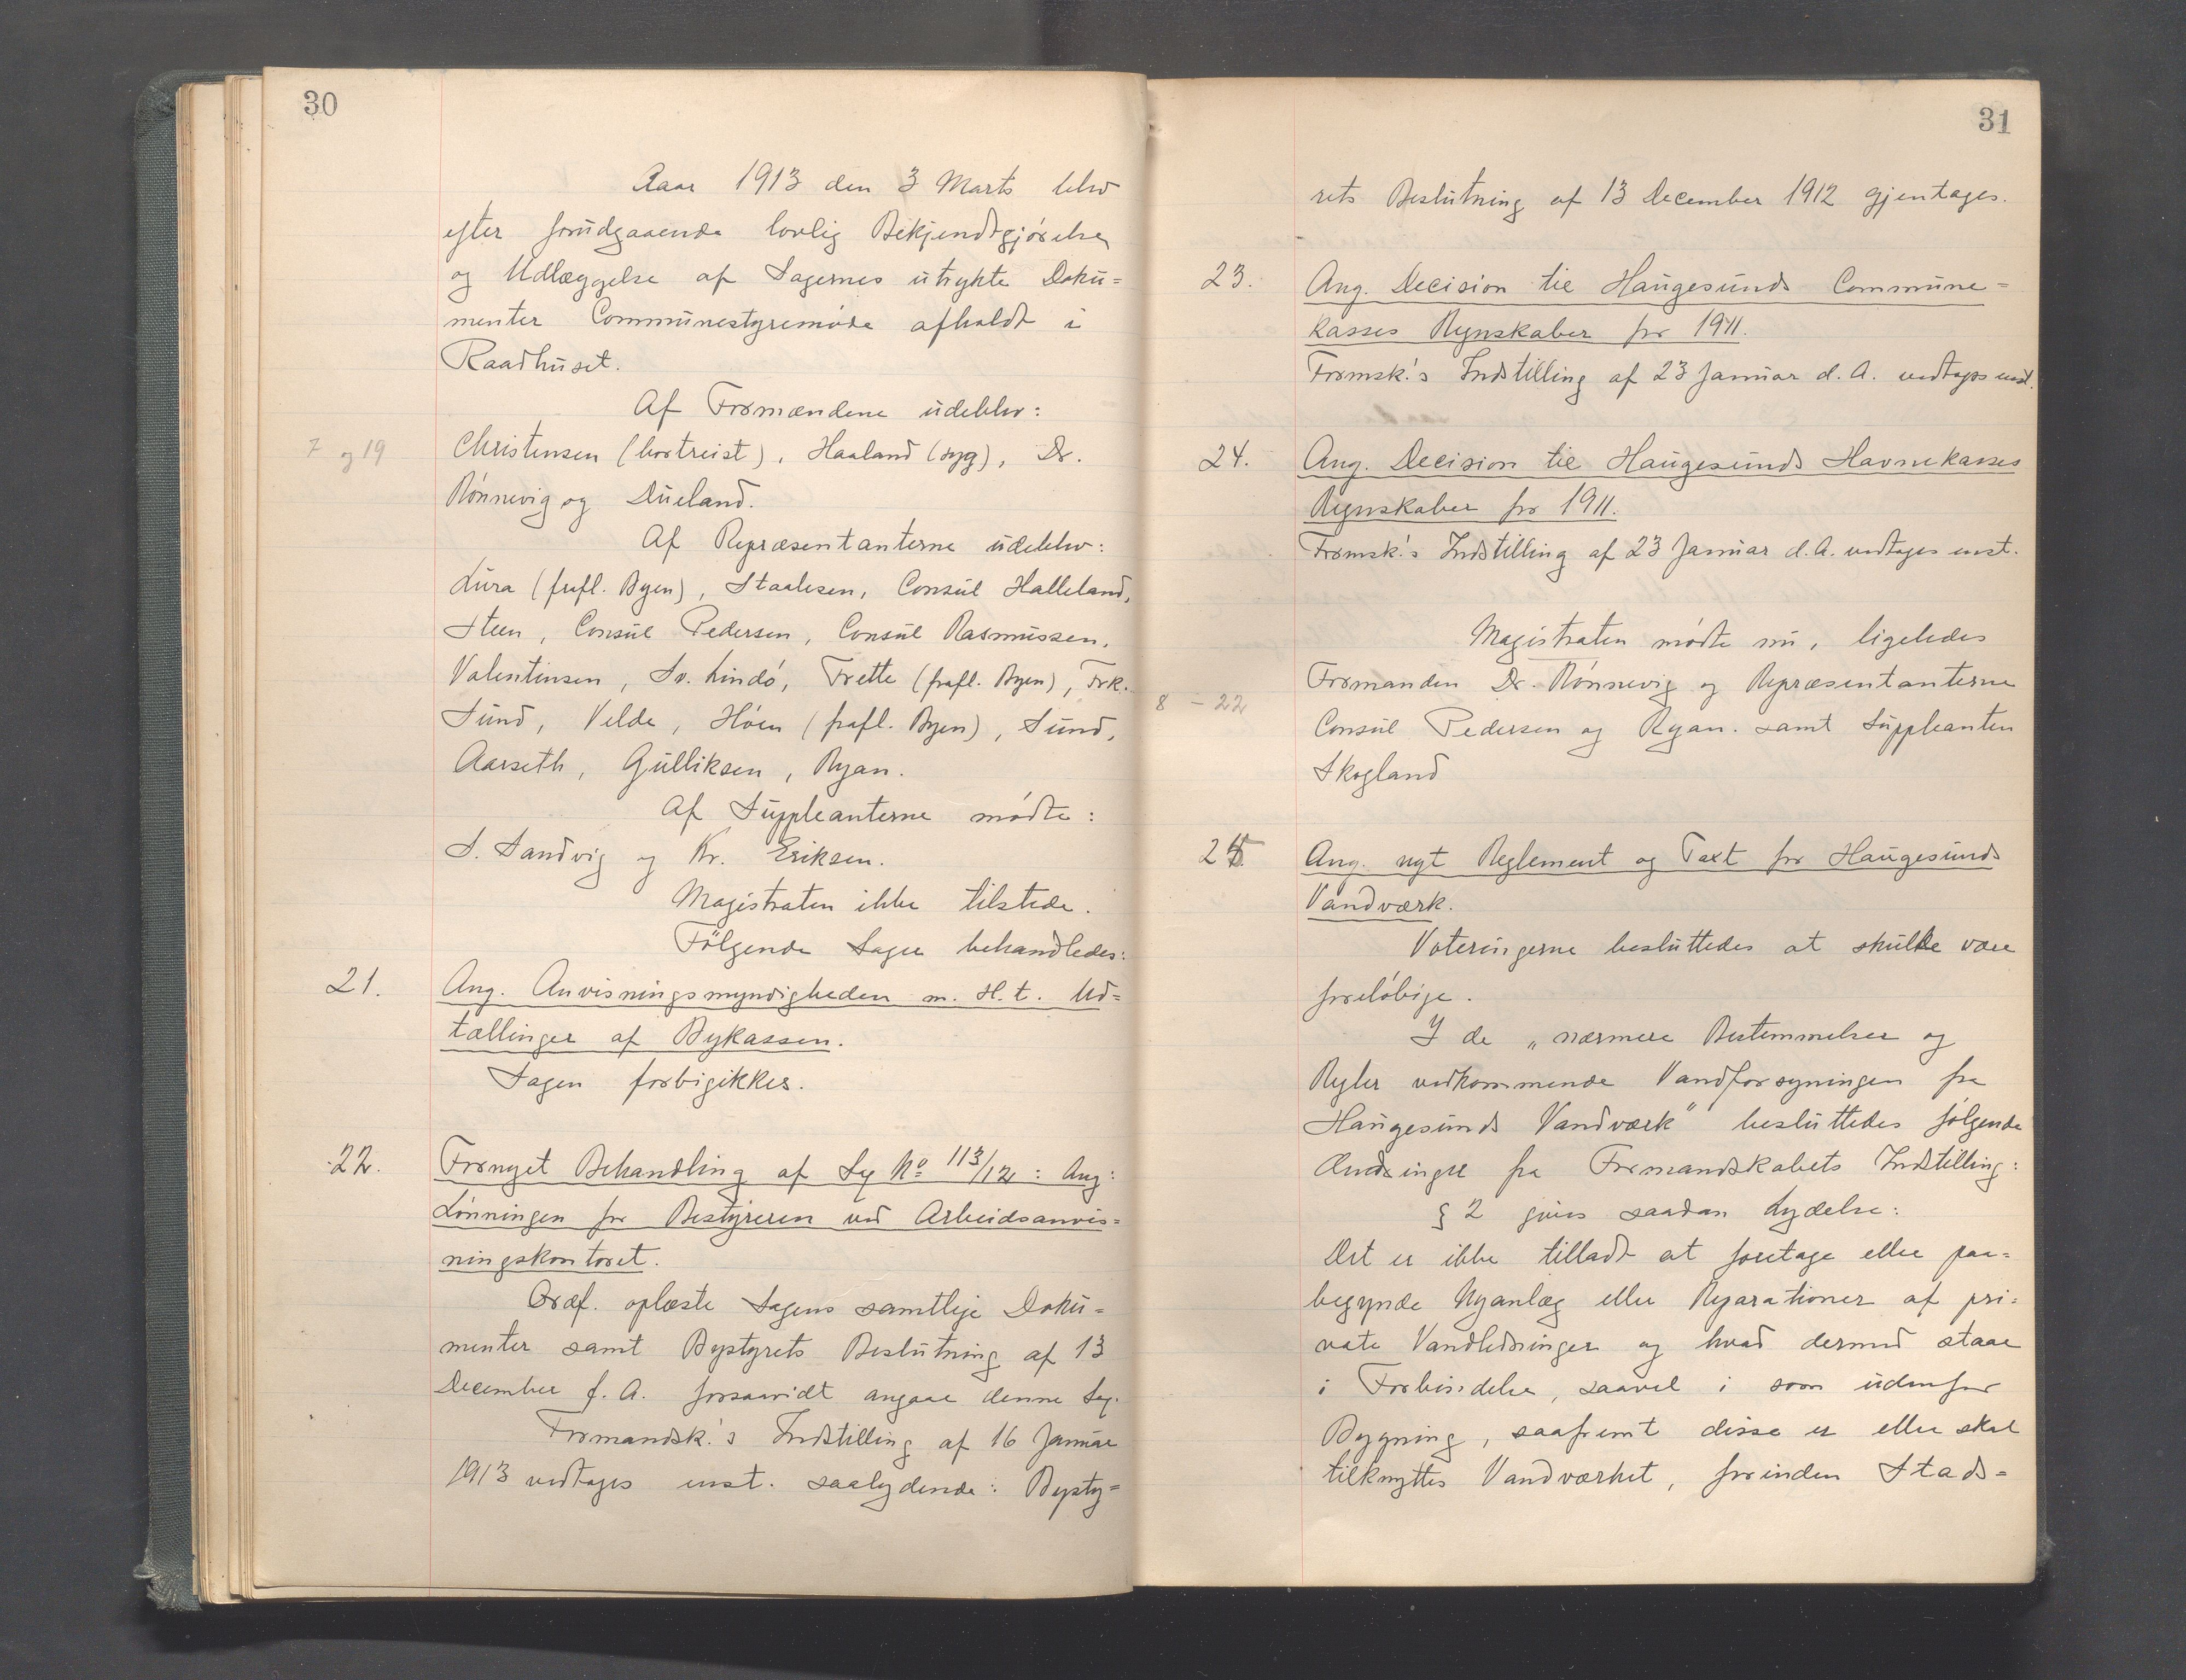 30
Aar 1913 den 3 Marts blev
efter forudgaaende lovlig Bekjendtgjørelse
og Udlæggelse af Sagernes utrykte Doku=
menter Communestyremøde afholdt i
Raadhuset.
Af Formændene udeblev:
7 og 19
Christensen (bortreist), Haaland (syg), Dr.
Rønnevig og Dueland.
Af Repræsentanterne udeblev:
Lura (frafl. Byen), Staalesen, Consul Halleland,
Steen, Consul Pedersen, Consul Rasmussen,
Valentinsen, Sv. Lindø, Frette (frafl. Byen), Frk.
Sund, Velde, Høie (frafl. Byen), Sund,
Aarseth, Gulliksen, Ryan.
Af Suppleanterne mødte:
S. Sandvig og Kr. Eriksen.
Magistraten ikke tilstede.
Følgende Sager behandledes:
21.
Ang. Anvisningsmyndigheden m. H. t. Ud=
tællinger af Bykassen.
Sagen forbigikkes.
22.
Fornyet Behandling af Sag No 113/12: Ang:
Lønningen for Bestyreren ved Arbeidsanvis=
ningskontoret.
Ordf. oplæste Sagens samtlige Doku=
menter samt Bystyrets Beslutning af 13
December f. A. forsaavidt angaar denne Sag.
Formandsk.'s Indstilling af 16 Januar
1913 vedtages enst. saalydende: Bysty=
31
rets Beslutning af 13 December 1912 gjentages.
23.
Ang. Decision til Haugesunds Commune=
kasses Regnskaber for 1911.
Formsk.'s Indstilling af 23 Januar d. A. vedtages enst.
24.
Ang. Decision til Haugesunds Havnekasses
Regnskaber for 1911.
Formsk.'s Indstilling af 23 Januar d. A. vedtages enst.
Magistraten mødte nu, ligeledes
Formanden Dr. Rønnevig og Repræsentanterne
8 - 22
Consul Pedersen og Ryan. samt Suppleanten
Skogland
25
Ang. nyt Reglement og Taxt for Haugesunds
Vandværk.
Voteringerne besluttedes at skulle være
foreløbige.
I de „nærmere Bestemmelser og
Regler vedkommende Vandforsyningen fra
Haugesunds Vandværk" besluttedes følgende
Ændringer fra Formandskabets Indstilling:
§ 2 gives saadan Lydelse:
Det er ikke tilladt at foretage eller paa=
begynde Nyanlæg eller Reparationer af pri=
vate Vandledninger og hvad dermed staar
i Forbindelse, saavel i som udenfor
Bygning, saafremt disse er eller skal
tilknyttes Vandværket, forinden Stads=